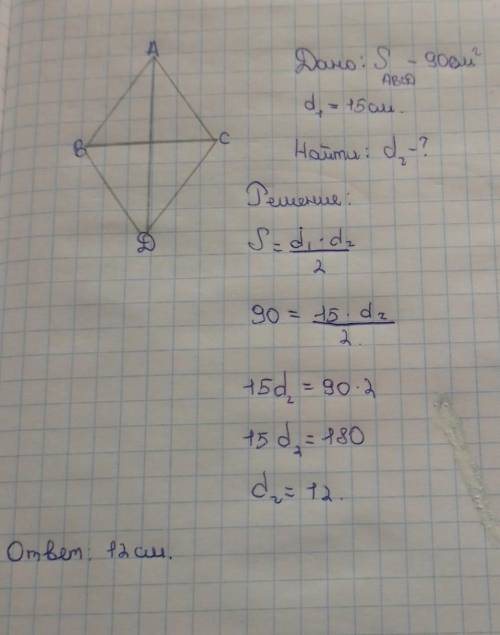 A
B
C
D
Дано: S ABCD - 90см²
d₁ = 15см.
Найти: d₂ - ?
Решение:
S = d₁ · d₂ / 2
90 = 15 · d₂ / 2.
15d₂ = 90 · 2
15 d₂ = 180
d₂ = 12.
Ответ: 12см.